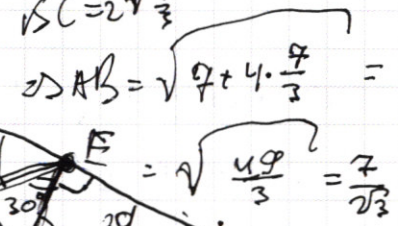 BC = 2√7/3
⇒ AB = √(7 + 4 · 7/3) =
E
= √(49/3) = 7/√3
30°